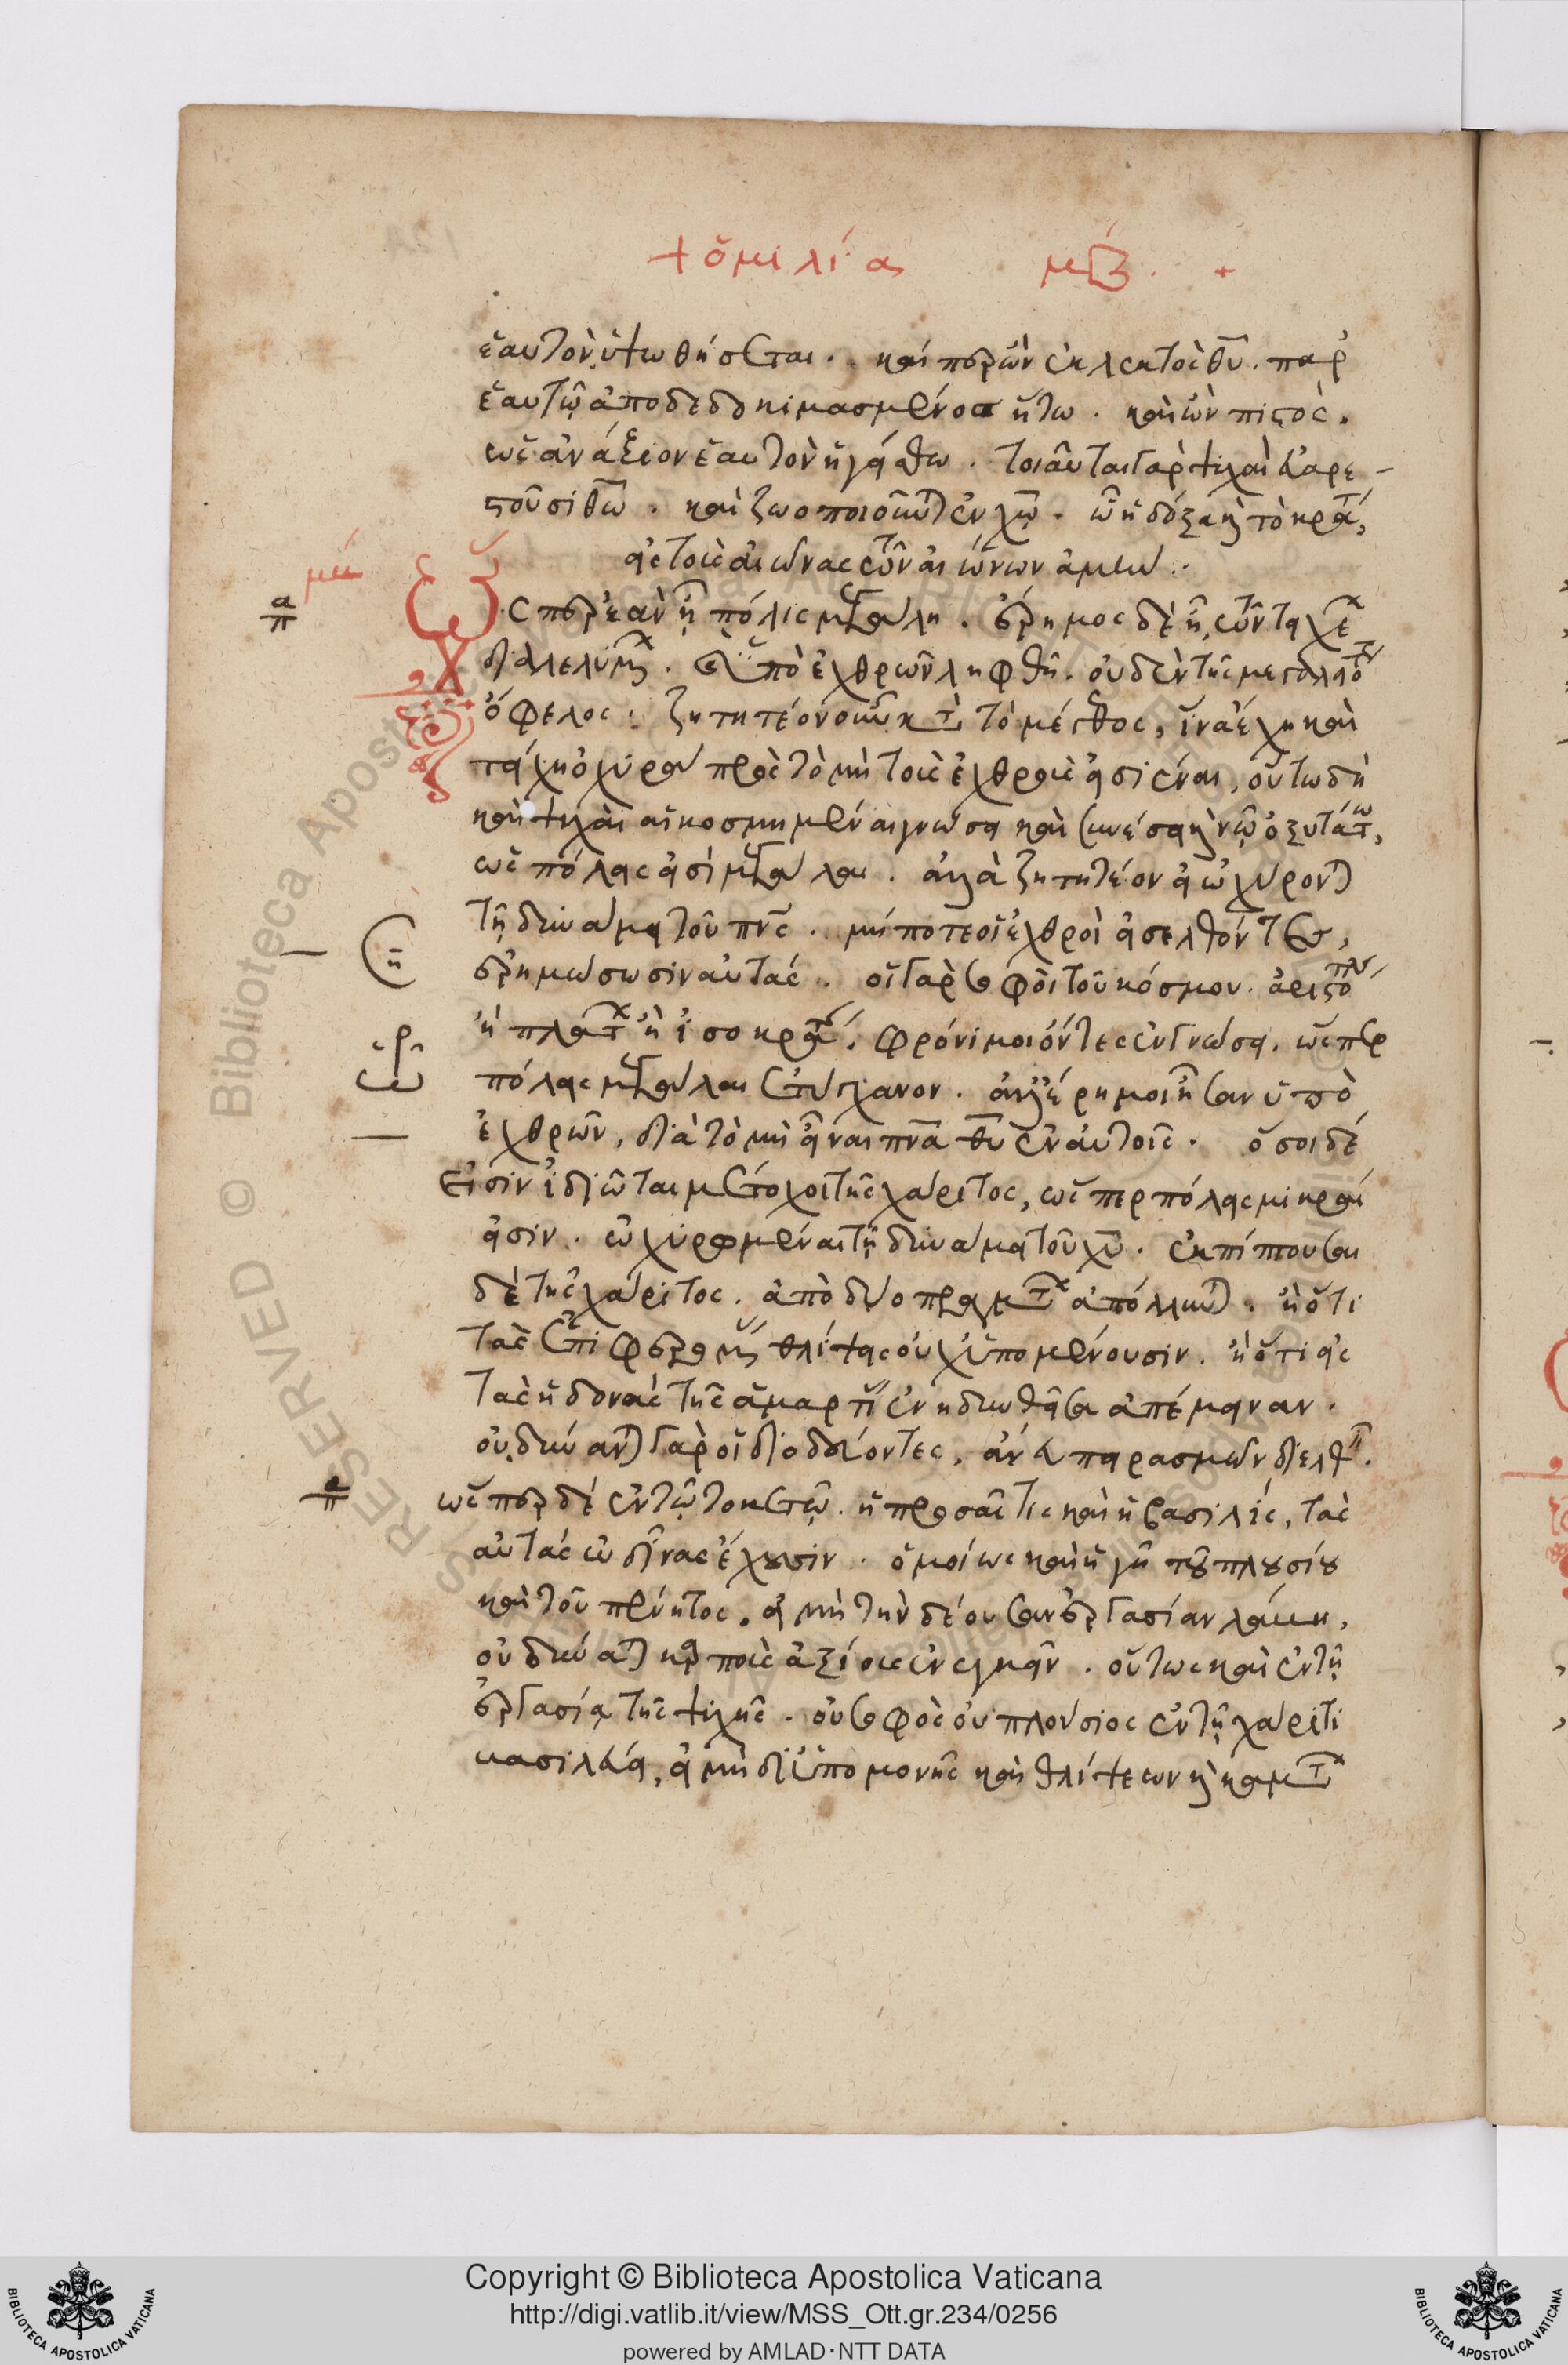 + ὁμιλία μβ. +
ἑαυτὸν ὑψωθήσεται. καίπερ ὢν ἐκλεκτὸς θ̅υ̅. παρ'
ἑαυτῷ ἀποδεδοκιμασμένος ἤτω. καὶ ὢν πιστὸς.
ὡς ἀνάξιον ἑαυτὸν ἡγείσθω. τοιαῦται γὰρ ψυχαὶ εὐαρε-
στοῦσι θ̅ω̅. καὶ ζωοποιοῦνται ἐν χ̅ω̅. ᾧ ἡ δόξα καὶ τὸ κράτος,
εἰς τοὺς αἰῶνας τῶν αἰώνων ἀμήν.
μβ
α π
Ὥσπερ ἐὰν ᾖ πόλις μεγάλη. ἔρημος δὲ ᾖ, τῶν τειχέων
διαλελυμένων. καὶ ὑπὸ ἐχθρῶν ληφθῇ. οὐδὲν τῆς μεγαλειότητος
ὄφελος. ζητητέον οὖν κατὰ τὸ μέγεθος, ἵνα ἔχῃ καὶ
τείχη ὀχυρὰ πρὸς τὸ μὴ τοὺς ἐχθροὺς εἰσιέναι, οὕτω δὴ
καὶ ψυχαὶ αἱ κοσμημέναι γνώσει καὶ συνέσει καὶ νῷ ὀξυτάτω,
ὡς πόλεις εἰσὶ μεγάλαι. ἀλλὰ ζητητέον εἰ ὠχύρονται
τῇ δυνάμει τοῦ π̅ν̅ς̅. μήποτε οἱ ἐχθροὶ εἰσελθόντες,
ση
ἐρημώσωσιν αὐτάς. οἱ γὰρ σοφοὶ τοῦ κόσμου. ἀριστοτέλης
ἢ πλάτων ἢ ἰσοκράτης. φρόνιμοι ὄντες ἐν γνώσει. ὥσπερ
ὡρ
πόλεις μεγάλαι ἐτύγχανον. ἀλλ' ἔρημοι ἦσαν ὑπὸ
ἐχθρῶν, διὰ τὸ μὴ εἶναι π̅ν̅α̅ θ̅υ̅ ἐν αὐτοῖς. ὅσοι δέ
εἰσιν ἰδιῶται μέτοχοι τῆς χάριτος, ὥσπερ πόλεις μικραί
εἰσιν. ὠχυρωμέναι τῇ δυνάμει τοῦ χ̅υ̅. ἐκπίπτουσαι
δὲ τῆς χάριτος. ἀπὸ δύο πραγμάτων ἀπόλλυνται. ἢ ὅτι
τὰς ἐπιφερομένας θλίψεις οὐχ ὑπομένουσιν. ἢ ὅτι εἰς
τὰς ἡδονὰς τῆς ἁμαρτίας ἐνηδυνθεῖσαι ἀπέμειναν.
οὐ δύνανται γὰρ οἱ διοδεύοντες, ἄνευ πειρασμῶν διελθεῖν.
α π
ὥσπερ δὲ ἐν τῷ τοκετῷ. ἡ προσαῖτις καὶ ἡ βασιλίς, τὰς
αὐτὰς ὠδῖνας ἔχουσιν. ὁμοίως καὶ ἡ γῆ τοῦ πλουσίου
καὶ τοῦ πένητος. εἰ μὴ τὴν δέουσαν ἐργασίαν λάβῃ,
οὐ δύναται καρποὺς ἀξίους ἐνεγκεῖν. οὕτως καὶ ἐν τῇ
ἐργασίᾳ τῆς ψυχῆς. οὐ σοφὸς οὐ πλούσιος ἐν τῇ χάριτι
βασιλεύει, εἰ μὴ δι' ὑπομονῆς καὶ θλίψεων καὶ καμάτων
Copyright © Biblioteca Apostolica Vaticana
http://digi.vatlib.it/view/MSS_Ott.gr.234/0256
powered by AMLAD·NTT DATA